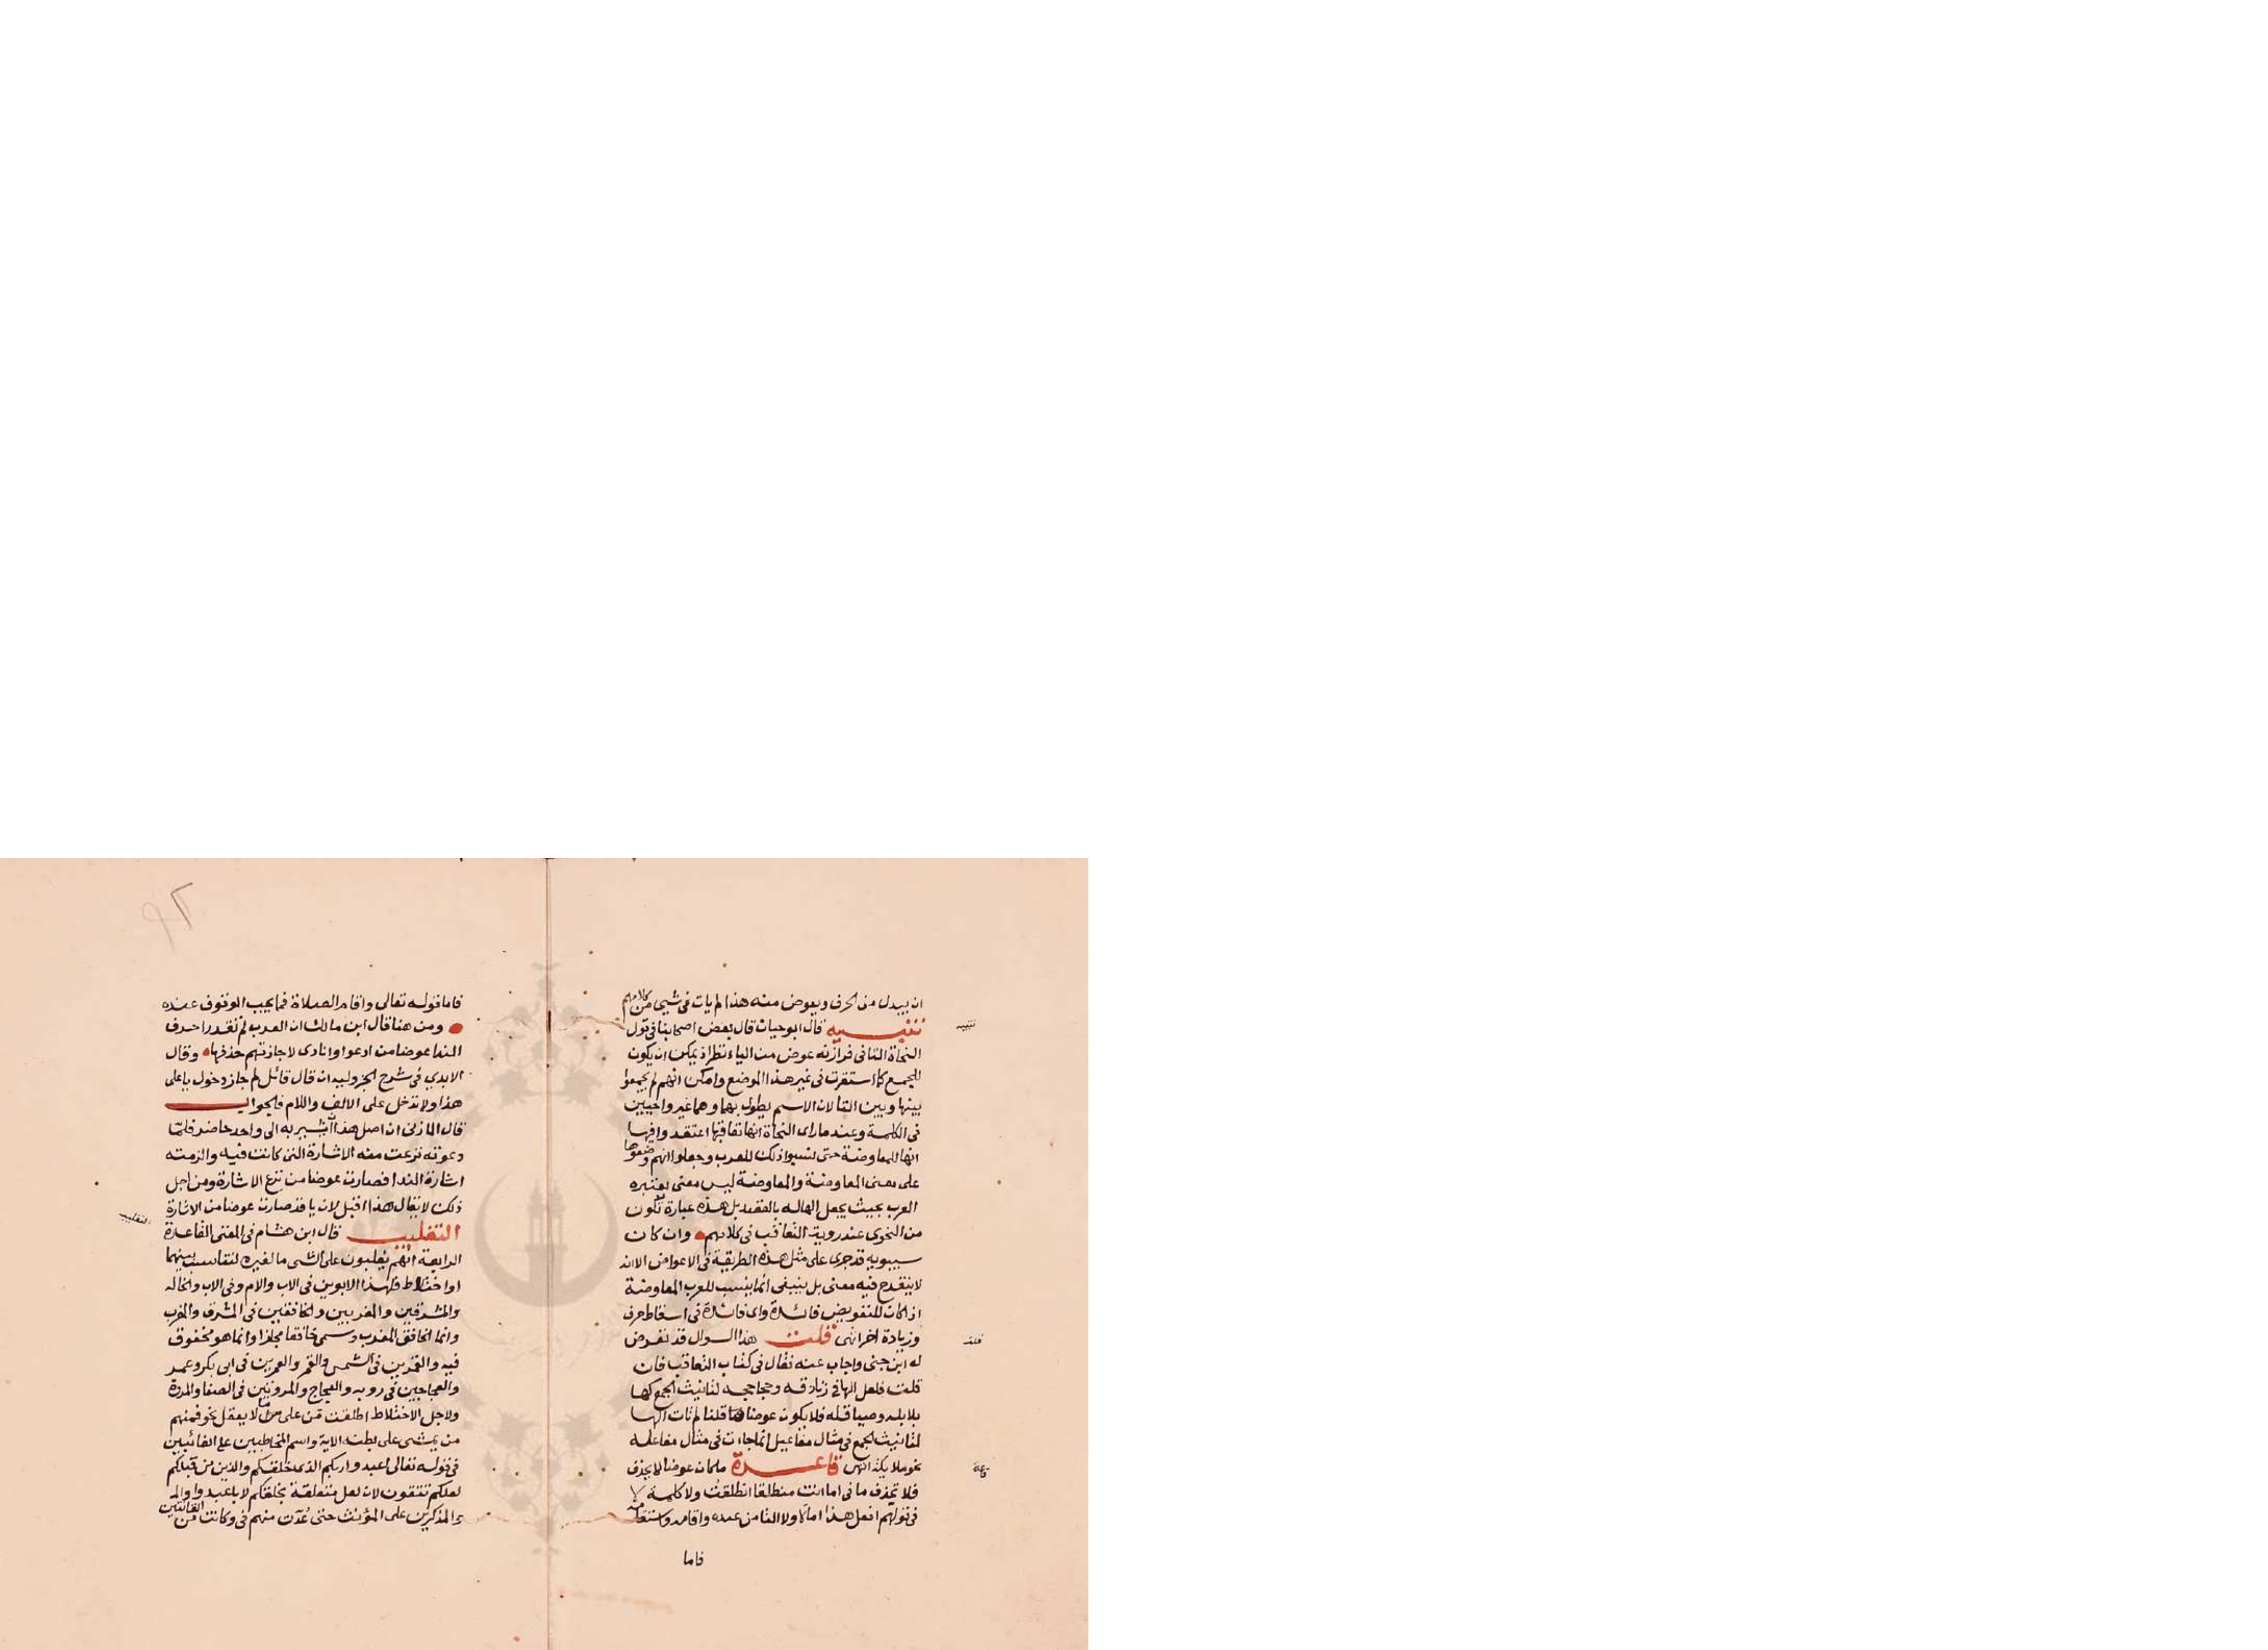 ان يبدل من الحرف ويعوض منه هذا لم يات في شيى من كلامهم
تنبيه
تنبيه قال ابو حيان قال بعض اصحابنا في قول
النحاة التا في فرازنه عوض من الياء نظر اذ يمكن ان يكون
للجمع كما استقرت في غير هذا الموضع وامكن انهم لم يجمعوا
بينها وبين التا لان الاسم يطول بهما وهما غير واجبين
في الكلمة وعند ما راى النحاة انها تعاقبها اعتقدوا فيها
انها للمعاوضة حتى نسبوا ذلك للعرب وجعلوا انهم وضعوها
على معنى المعاوضة والمعاوضة ليس معنى تعتبره
العرب بحيث يجعل الهاله بالقصد بل هذه عبارة تكون
من النحوى عند روية التعاقب في كلامهم وان كان
سيبويه قد جرى على مثل هذه الطريقة في الاعواض الا انه
لا ينقدح فيه معنى بل ينبغى انما ينسب للعرب المعاوضة
اذا كان للتعويض فائدة واى فائدة في اسقاط حرف
قلت
وزيادة اخر انتهى قلت هذا السوال قد تعرض
له ابن جنى واجاب عنه فقال في كتاب التعاقب فان
قلت فلعل الها في زنادقه وجحاجحه لتانيث الجمع كها
ملايكه وصياقله فلا يكون عوضا قلنا لم تات الها
لتانيث الجمع في مثال مفاعيل انما جاءت في مثال مفاعله
قاعدة
نحو ملايكه انتهى قاعدة ما كان عوضا لا يحذف
فلا تحذف ما في اما انت منطلقا انطلقت ولا كلمة لا
في قولهم افعل هذا اما لا ولا التا من عده واقامه واستقامه
فاما
فاما قوله تعالى واقام الصلاة فمما يجب الوقوف عنده
ومن هنا قال ابن مالك ان العرب لم تقدر احرف
الندا عوضا من ادعوا وانادى لاجازتهم حذفها وقال
الابدي في شرح الجزوليه ان قال قائل لم جاز دخول يا على
هذا ولا تدخل على الالف واللام فالجواب
قال المازنى ان اصل هذا ان تشير به الى واحد حاضر فلما
دعوته نزعت منه الاشارة التى كانت فيه والزمته
اشارة الندا فصارت عوضا من نزع الاشارة ومن اجل
ذلك لا يقال هذا اقبل لان يا قد صارت عوضا من الاشارة
التغليب
التغليب قال ابن هشام في المغنى القاعدة
الرابعة انهم يغلبون على الشى ما لغيره لتناسب بينهما
او اختلاط فلهذا الابوين في الاب والام وفي الاب والخاله
والمشرقين والمغربين والخافقين في المشرق والمغرب
وانما الخافق المغرب وسمى خافقا مجازا وانما هو مخفوق
فيه والقمرين في الشمس والقمر والعمرين في ابى بكر وعمر
والعجاجين في روبه والعجاج والمروتين في الصفا والمروة
ولاجل الاختلاط اطلقت من على ما لا يعقل نحو فمنهم
من يمشى على بطنه الاية واسم المخاطبين على الغائبين
في قوله تعالى اعبدوا ربكم الذى خلقكم والذين من قبلكم
لعلكم تتقون لان لعل متعلقة بخلقكم لا باعبدوا
والمذكرين على المؤنث حتى عدت منهم في وكانت من القانتين